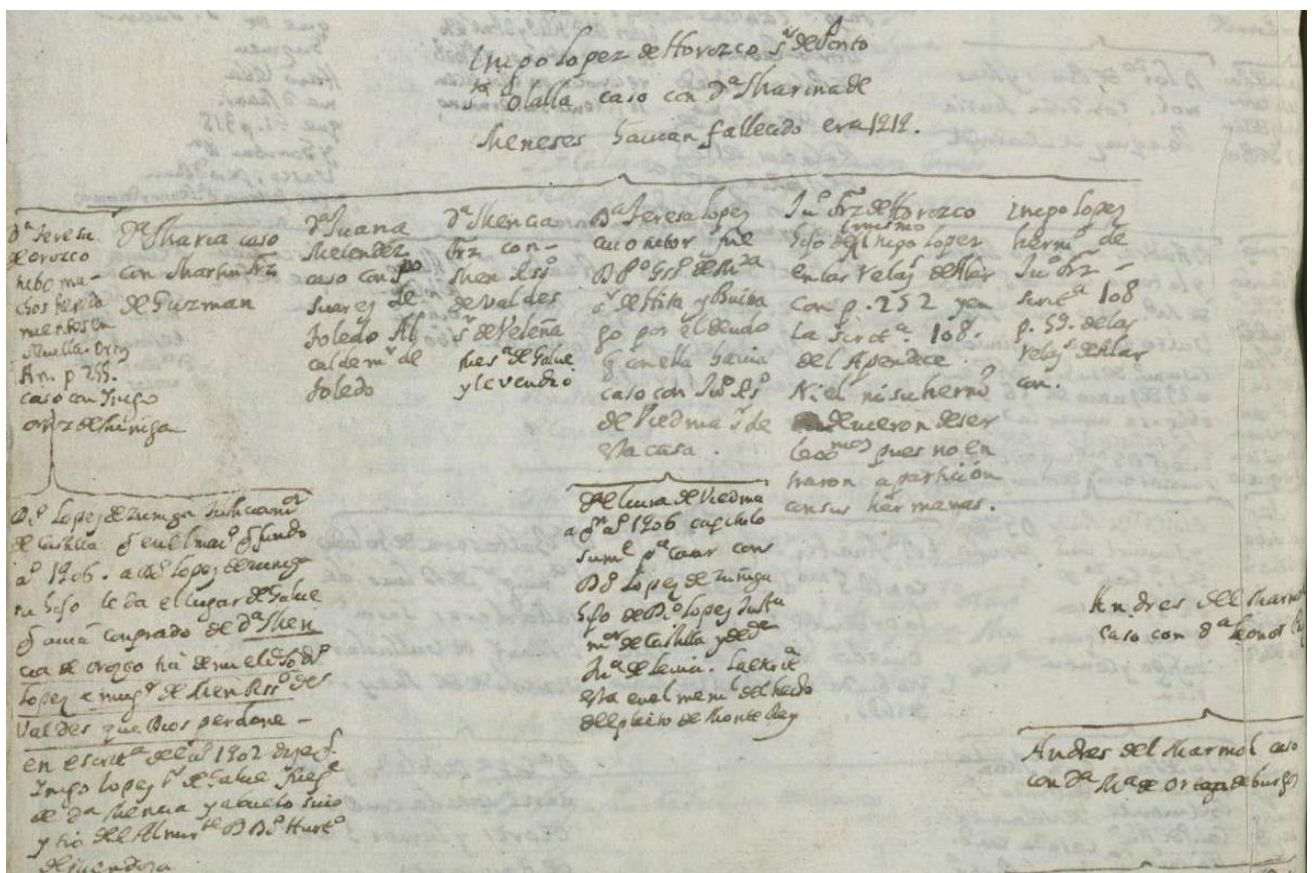 Iñigo Lopez de Horozco s.r de Pinto
S.ta Olalla caso con D.a Marina de
Meneses havian fallecido era 1412.
D.a Teresa
de orozco
hubo mu-
chos hered.a
mientos en
Murcia. Ortiz
An. p 255.
caso con Inigo
ortz de zuniga
D.a Maria caso
con Martin frz
de Guzman
D.a Juana
Melendez
caso con po
Suarez de
toledo Al
calde m.r de
toledo
D.a Mencia
frz con-
Men Rs.o
de Valdes
s.r de Veleña
fue s.a de Galve
y le vendio
D.a Teresa Lopez
cuio tutor fue
D P.o Gs.s de M.za
s.r de Hita y Buitra
go por el deudo
q con ella havia
caso con Ju.o Rs.o
de Viedma s.r de
esta casa.
Ju.o frz de Horozco
hijo del mismo Inigo Lopez
en las Relaz.s de Alar
con p. 252 y en
la Scrit.a 108.
del Apendice.
Ni el ni su herm.o
devieron de ser
lexmos pues no en
traron a particion
con sus hermanas.
Inigo Lopez
herm.o de
Ju.o frz -
scrit.a 108
p. 59. de las
Relaz.s de Alar
con.
D.o Lopez de Zuniga Justicia m.or
de Castilla q en el mai.o q fundo
a.o 1406. a D.o Lopez de zuniga
su hijo le da el lugar de Galve
q avia conprado de D.a Men
cia de orozco hija de Inigo
Lopez e mug.r de Men Rss.o de
Valdes que Dios perdone -
en escrit.a del a.o 1402 dize q
Inigo Lopez s.r de Galve
de D.a Mencia y abuelo suio
y tio del Almir.te D D.o Hurt.o
de mendoza
D.a Elvira de Viedma
a.o 1406 capitulo
su m.o p.a casar con
D.o Lopez de zuñiga
hijo de D.o Lopez Justi
m.or de Castilla y de D.a
Ju.a de leiva. la escrit.a
esta en el mem.l del hecho
del pleito de Monte Rey
Andres del Marmol
caso con D.a Leonor
Andres del Marmol caso
con D.a M.a de Ortega de burgos